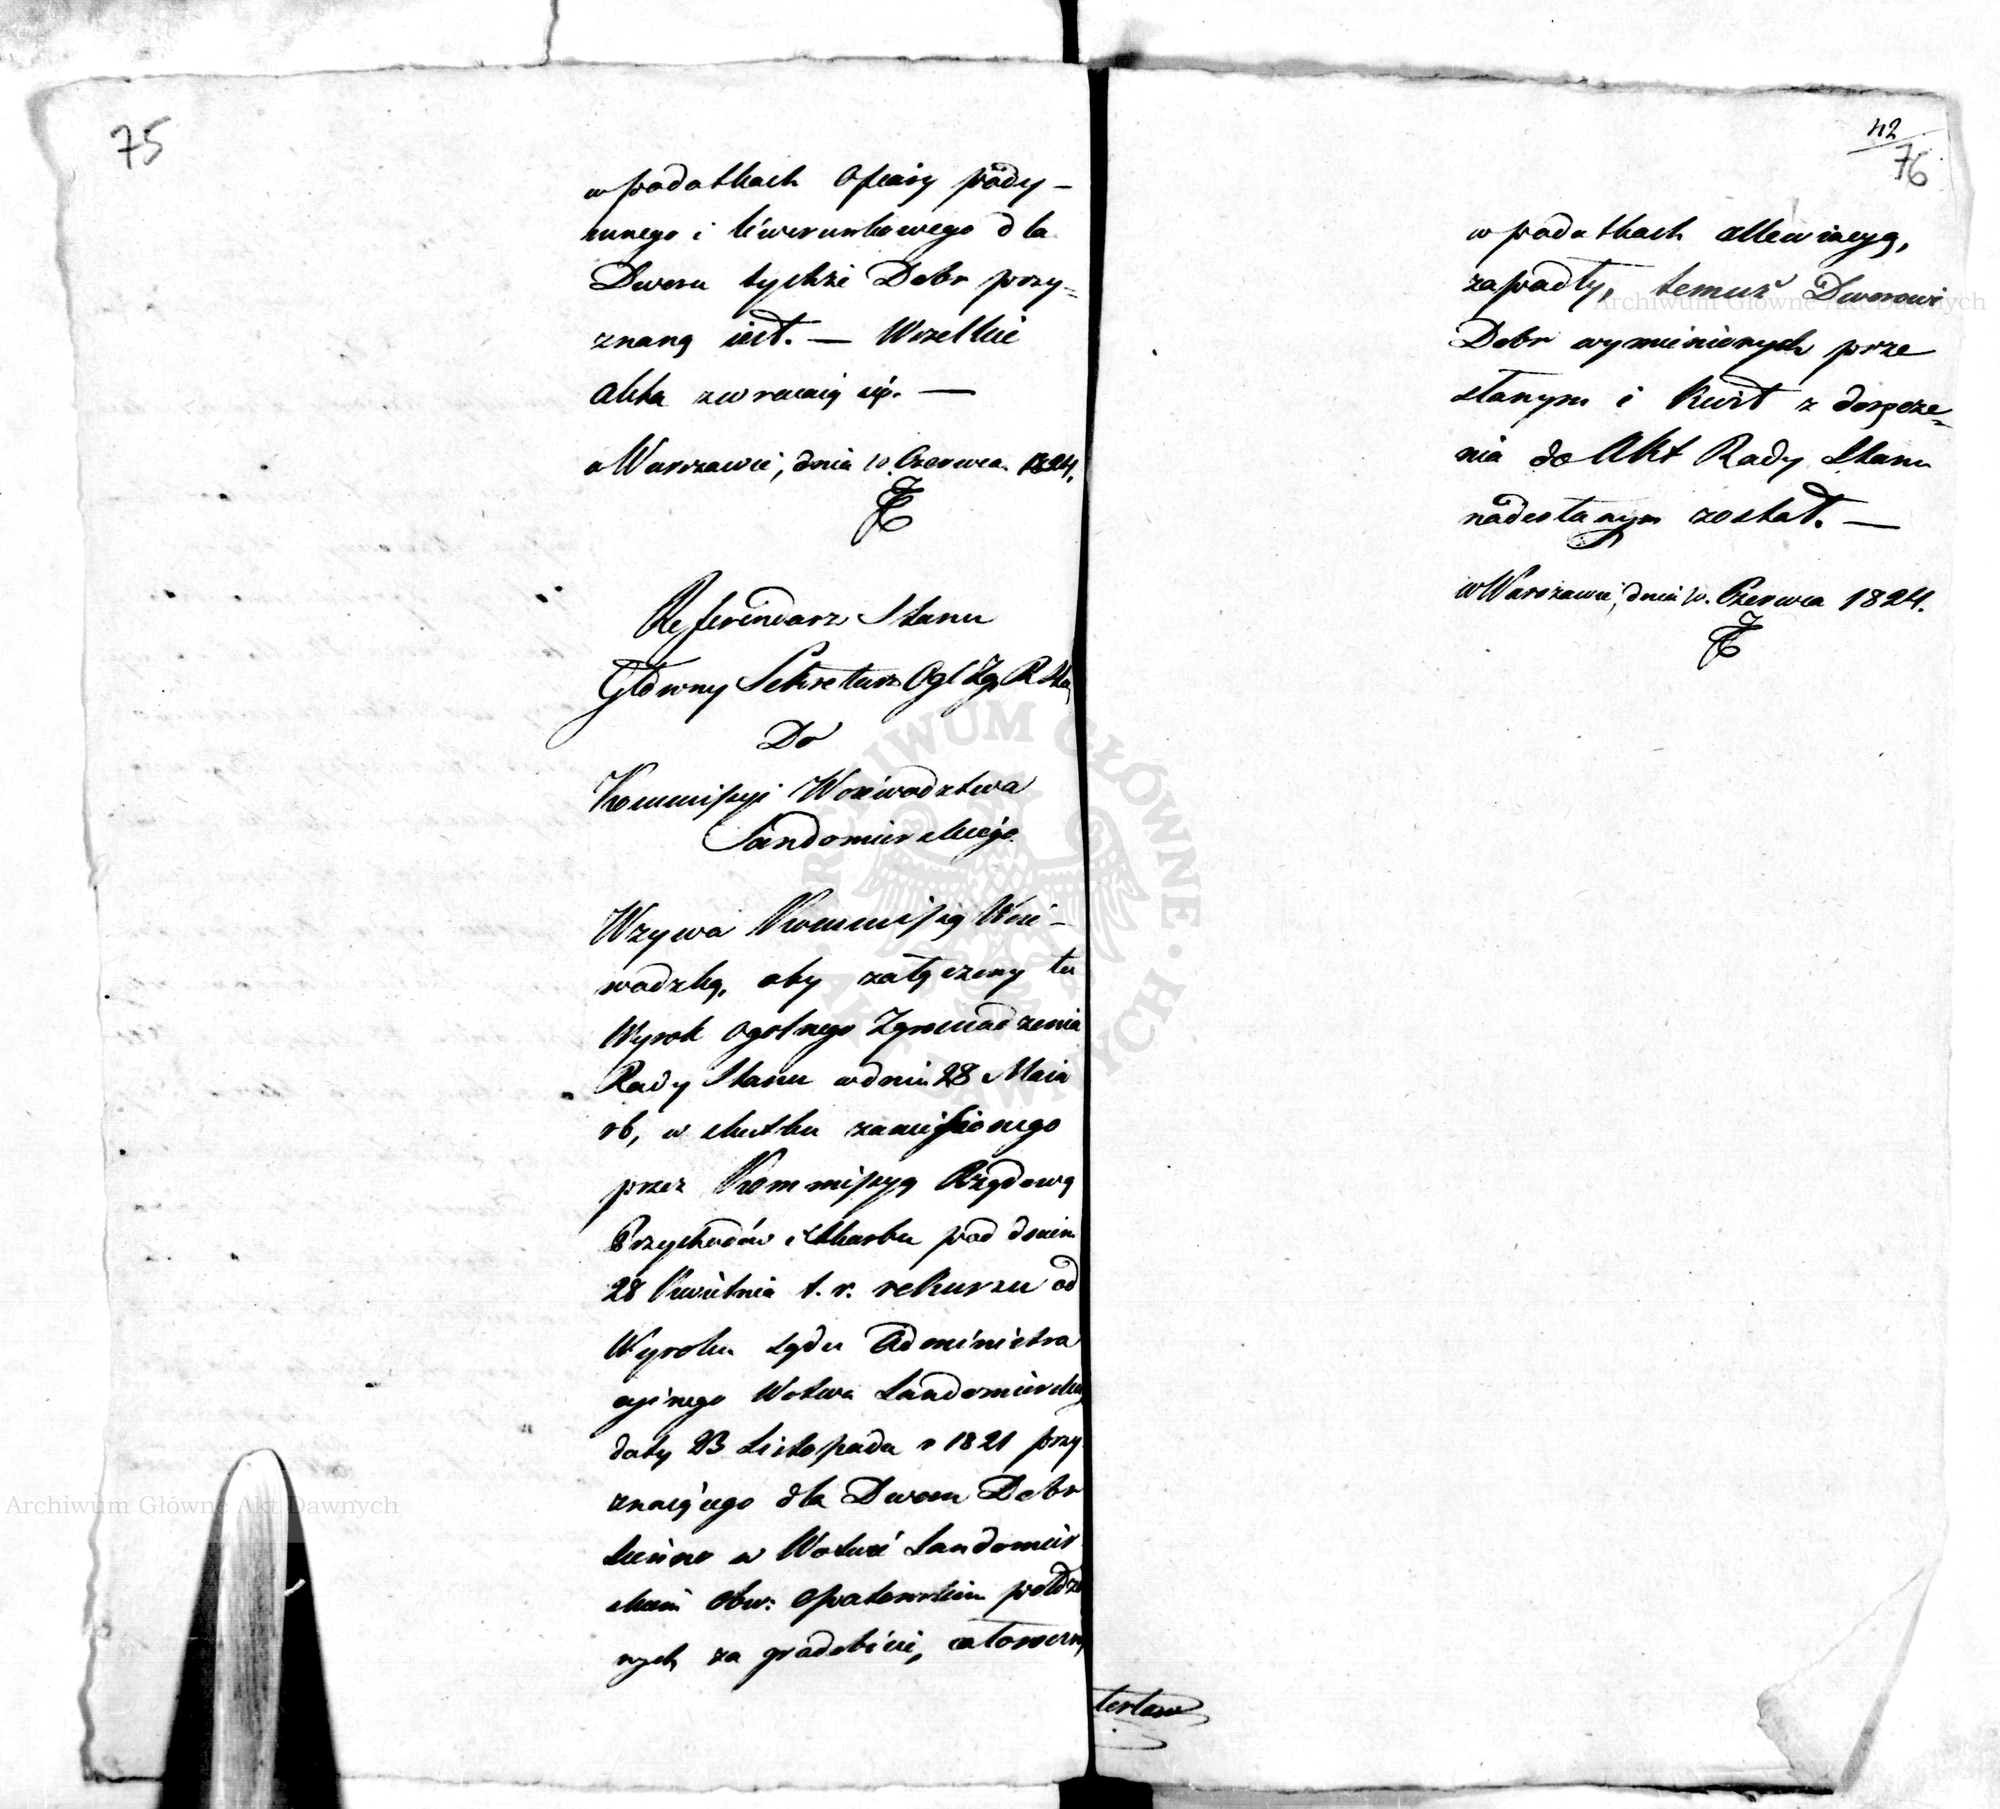 75
w podatkach Ofiary pody-
mnego i liwerunkowego dla
Dworu tychże Dobr przy=
znaną iest. — Wszelkie
akta zwracaią się. —
w Warszawie, dnia 10 Czerwca 1824.
Referendarz Stanu
Główny Sekretarz Ogl Zg R Sta
Do
Kommissyi Woiewodztwa
Sandomierskiego
Wzywa Kommissią Woie-
wodzką, aby załączony tu
Wyrok Ogolnego Zgromadzenia
Rady Stanu w dniu 28 Maia
rb, w skutku zaniesionego
przez Kommissyą Rządową
Przychodów i Skarbu pod dniem
28 Kwietnia t. r. rekursu od
Wyroku Sądu Administra
cyinego Wotwa Sandomierskieg
daty 23 Listopada r 1821 przy
znaiącego dla Dworu Dobr
w Wotwie Sandomier
skiem Obw: Opatowskim położo
nych za gradobicie, całoroczną
42
76
w podatkach allewiacyą,
zapadły, temuż Dworowi
Dobr wymienionych prze
słanym i kwit z doręcze=
nia do Akt Rady Stanu
nadesłanym został. —
w Warszawie, dnia 10. Czerwca 1824.
Archiwum Główne Akt Dawnych
Archiwum Główne Akt Dawnych
ARCHIWUM GŁÓWNE AKT DAWNYCH